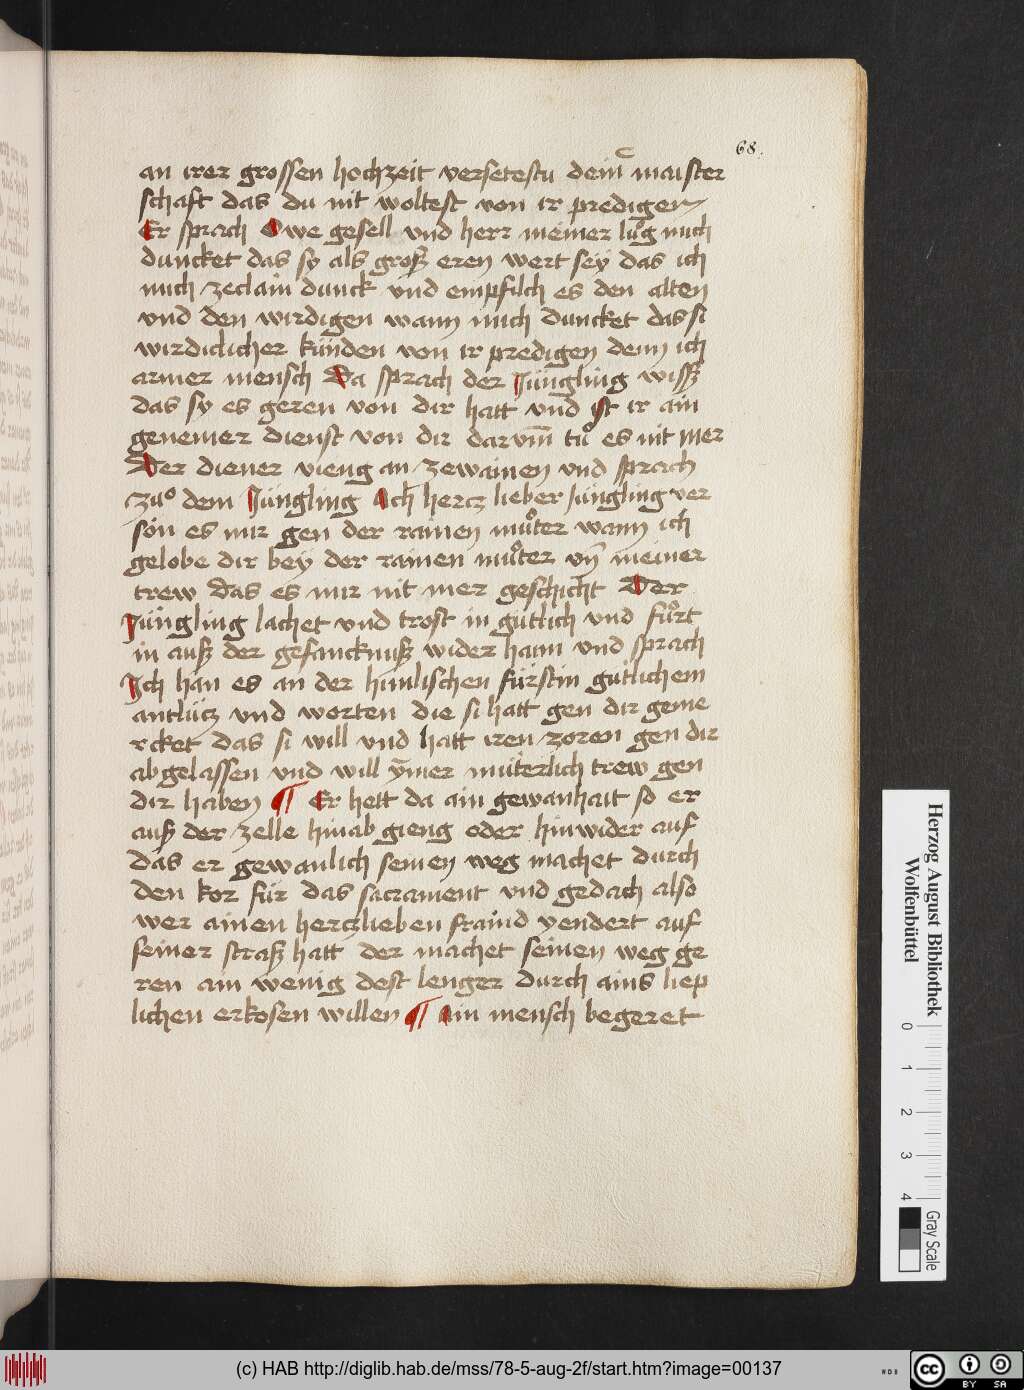 68.
an irer grossen hochzeit versetestu deim̄ maister
schaft das du nit woltest von ir predigen
Er sprach Owe gesell vnd herr meiner lůg mich
duncket das sy als groß eren wert sey das ich
mich zeclain dunck vnd empfilch es den alten
vnd den wirdigen wann mich duncket das si
wirdiclicher künden von ir predigen denn ich
armer mensch Da sprach der Jüngling wiss
das sy es geren von dir hatt vnd ist ir ain
genemer dienst von dir darvm̄ tů es nit mer
Der diener vieng an zewainen vnd sprach
zuo dem Jüngling Ach hercz lieber Jüngling ver
sön es mir gen der rainen můter wann ich
gelobe dir bey der rainen můter vn̄ meiner
trew das es mir nit mer geschicht Der
Jüngling lachet vnd trost in gütlich vnd fůrt
in auß der gefancknuß wider haim vnd sprach
Ich han es an der himlischen fürstin gütlichem
antlücz vnd worten die si hatt gen dir geme
rcket das si will vnd hatt iren zoren gen dir
abgelassen vnd will ym̄er müterlich trew gen
dir haben ¶ Er hett da ain gewanhait so er
auß der zelle hinab gieng oder hinwider auf
das er gewanlich seinen weg machet durch
den kor für das sacrament vnd gedach also
wer ainen herczlieben fraind yendert auf
seiner straß hatt der machet seinen weg ge
ren ain wenig dest lenger durch ains liep
lichen erkosen willen ¶ Ain mensch begeret
Herzog August Bibliothek
Wolfenbüttel
0 1 2 3 4
Gray Scale
(c) HAB http://diglib.hab.de/mss/78-5-aug-2f/start.htm?image=00137
cc BY SA